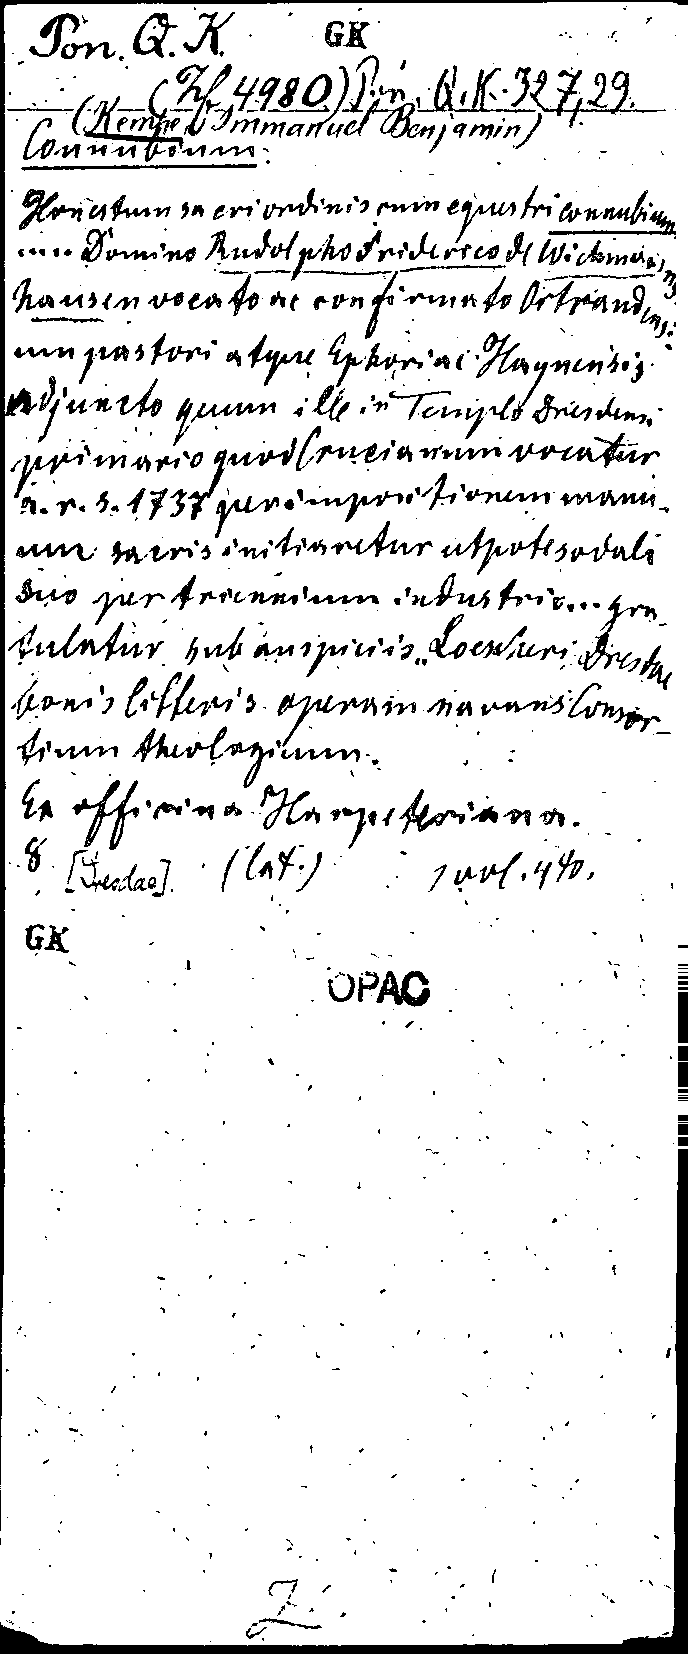 Pon. Q. K. GK
(Zf 4980) Pon. Q. K. 327,29.
(Kempe, Immanuel Benjamin)
Connubium.
Honestum sacri ordinis cum equestri connubium
... Domino Rudolpho Friderico de Wichmans
hausen vocato ac confirmato Ortrandensi
um pastori atque Ephoriae Haynensis
adjuncto quum ille in Templo Dresdensi
primario quod Crucianum vocatur
a. r. s. 1737 per impositionem manu-
um sacris initiaretur utpote sodali
suo per triennium industrio... gra-
tulatur sub auspiciis Loescheri Dresdae
bonis litteris operam navans Consor-
tium theologicum.
Ex officina Harpeteriana.
8 [Dresdae]. (lat.) 1 vol. 4°.
GK
OPAC
Z